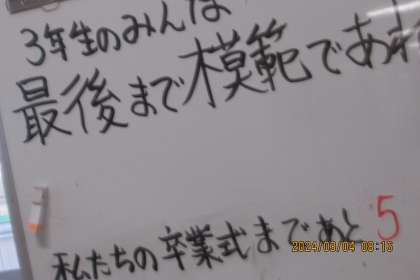 3年生のみんな
最後まで模範であれ
私たちの卒業式まであと5
2024/03/04 08:16